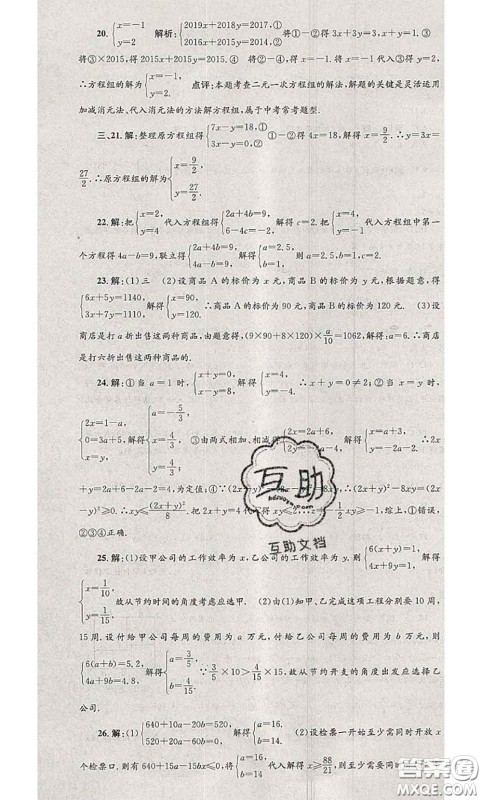 20. {x=-1 y=2 解析:{2019x+2018y=2017,① 2016x+2015y=2014,② 将①-②得 3x+3y=3,x+y=1,③
将③×2015,得 2015x+2015y=2015.④ 将②-④,得 x=-1. 将 x=-1 代入③得 y=2.
∴方程组的解为{x=-1, y=2. 点评:本题考查二元一次方程组的解法,解题的关键是灵活运用
加减消元法、代入消元法的方法解方程组,属于中考常考题型.
三、21.解:整理原方程组得{7x-y=18,① 3x-y=0.② ①-②得 4x=18,解得 x=9/2.∴y=3x=
27/2.∴原方程组的解为{x=9/2, y=27/2.
22.解:把{x=2, y=4 代入方程组得{2a+4b=9, 6-4c=-2. 解得 c=2.把{x=4, 代入方程组中第一
个方程得 4a-b=9,联立得{2a+4b=9, 4a-b=9. 解得{a=2.5, b=1. 则 a=2.5,b=1,c=2.
23.解:(1)三 (2)设商品 A 的标价为 x 元,商品 B 的标价为 y 元,根据题意,得
{6x+5y=1140, 3x+7y=1110. 解得{x=90, y=120. ∴商品 A 的标价为 90 元,商品 B 的标价为 120 元. (3)设
商店是打 a 折出售这两种商品,由题意得,(9×90+8×120)×a/10=1062,解得:a=6.∴商
店是打六折出售这两种商品的.
24.解:①当 a=1 时,{x+y=0, x-y=8, 解得{x=4, y=-4. ∴x+y=0≠2;②当
{2x=1-a, 0=3a+5, x=y, 解得{a=-5/3, x=4/3, y=4/3; ③由两式相加、相减得{2x=2a+6, 2y=-4a-4, 解得{x=a+3, y=-2a-2. ∴2x
+y=2a+6-2a-2=4,为定值;④∵(2x+y)²-8xy=(2x-y)²,∴(2x+y)²-8xy=(2x-
综上:①错误,
②③④正确.
25.解:(1)设甲公司的工作效率为 x,乙公司的工作效率为 y.则{6(x+y)=1, 4x+9y=1,
{x=1/10, y=1/15. 故从节约时间的角度考虑应选甲. (2)由(1)知甲、乙完成这项工程分别要 10 周,
15 周.设付给甲公司每周的费用为 a 万元,付给乙公司每周的费用为 b 万元,则
{6(a+b)=5.2, 4a+9b=4.8, {a=3/5, b=4/15. ∵3/5×10>4/15×15.∴从节约开支的角度出发应选择乙公
司.
26.解:(1){640+10a-20b=0, 520+20a-60b=0, 解得{a=16, b=14. (2)设检票一开始至少需同时开放 x
个检票口.则有 640+15a-15bx≤0,将{a=16, b=14 代入解得 x≥88/21,所以至少需要同时
互助
互助文档
答案圈
MXQE.COM